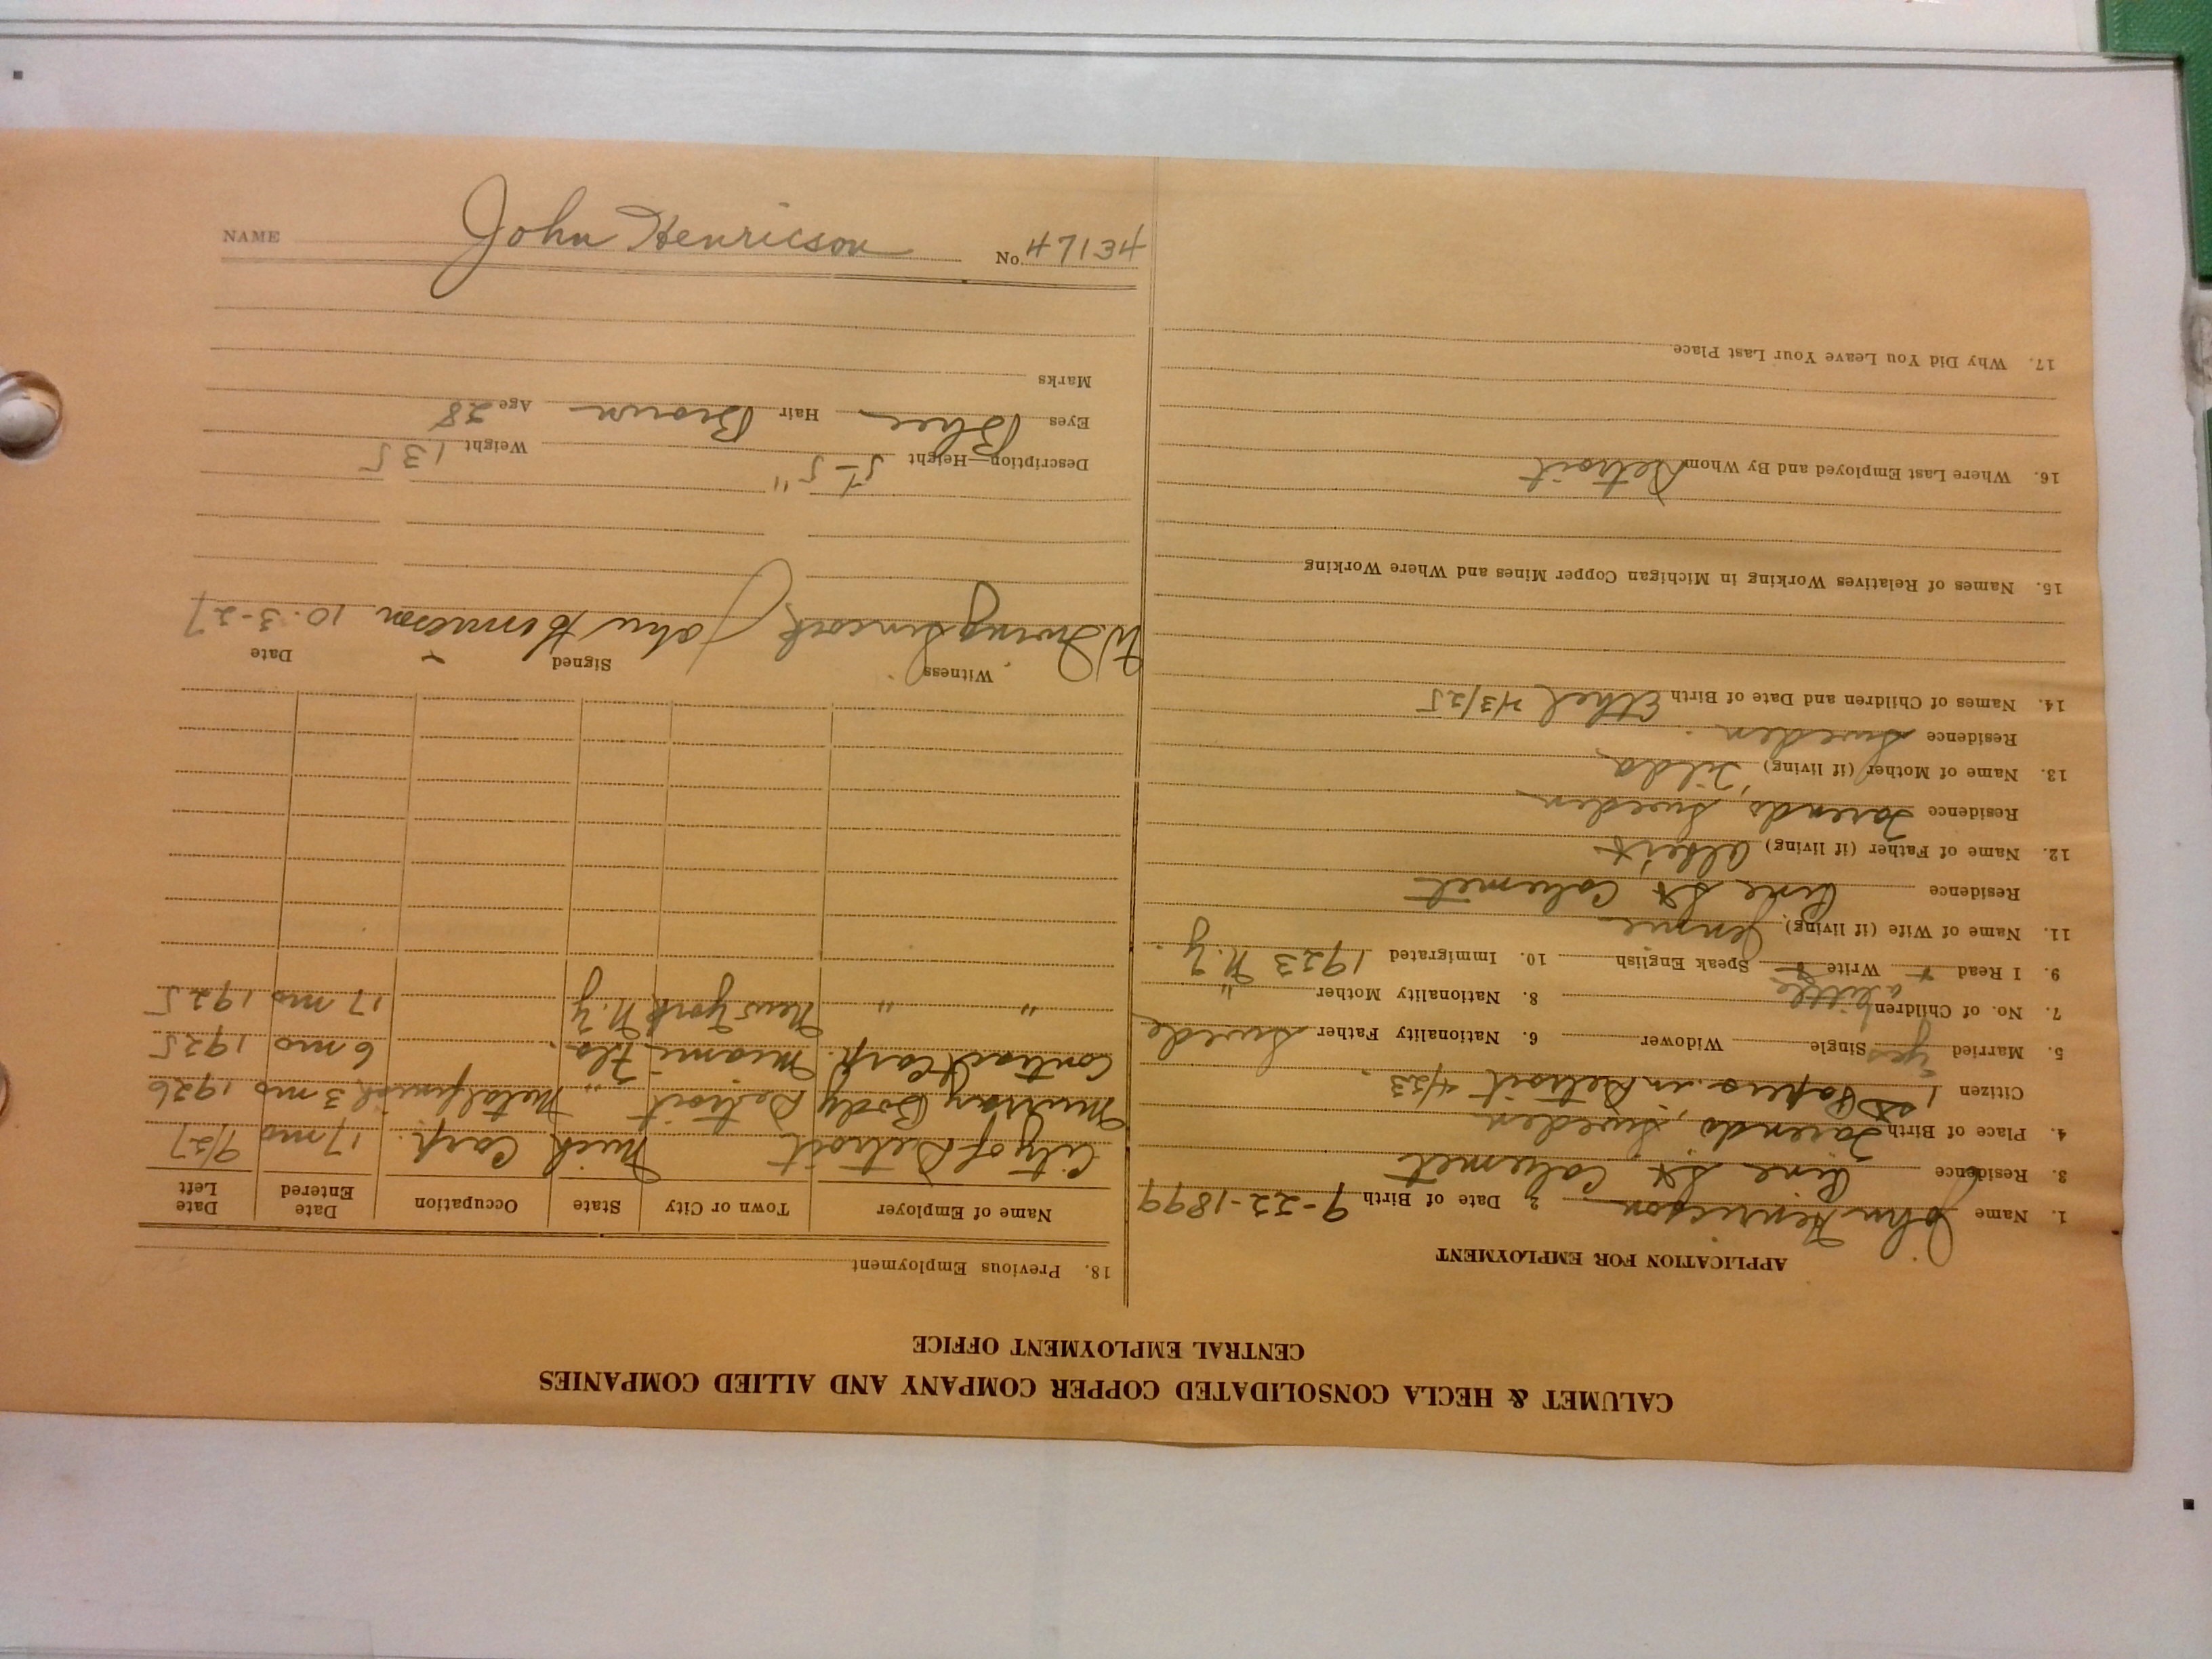 CALUMET & HECLA CONSOLIDATED COPPER COMPANY AND ALLIED COMPANIES
CENTRAL EMPLOYMENT OFFICE
APPLICATION FOR EMPLOYMENT
1. Name John Henricson 2. Date of Birth 9-22-1899
3. Residence Pine St Calumet
4. Place of Birth Tarendo, Sweden
Citizen 1st Papers in Detroit 4/23
5. Married yes Single Widower 6. Nationality Father Swede
7. No. of Children 8. Nationality Mother "
a little
9. I Read + Write + Speak English 10. Immigrated 1923 N.Y.
11. Name of Wife (if living) Jennie
Residence Pine St Calumet
12. Name of Father (if living) Albert
Residence Tarendo, Sweden
13. Name of Mother (if living) Tilda
Residence Sweden
14. Names of Children and Date of Birth Ethel 4/3/25
15. Names of Relatives Working in Michigan Copper Mines and Where Working
16. Where Last Employed and By Whom Detroit
17. Why Did You Leave Your Last Place
18. Previous Employment
Name of Employer Town or City State Occupation Date Entered Date Left
City of Detroit Mich Carp. 17 mo 9/27
Murray Body Detroit " Metal finish 3 mo 1926
Contract Carp. Miami Fla. 6 mo 1925
" " New York N.Y. N.Y 17 mo 1925
Witness Signed Date
W. Irving John Henricson 10-3-27
Description—Height 5-5" Weight 135
Eyes Blue Hair Brown Age 28
Marks
NAME John Henricson No. 47134